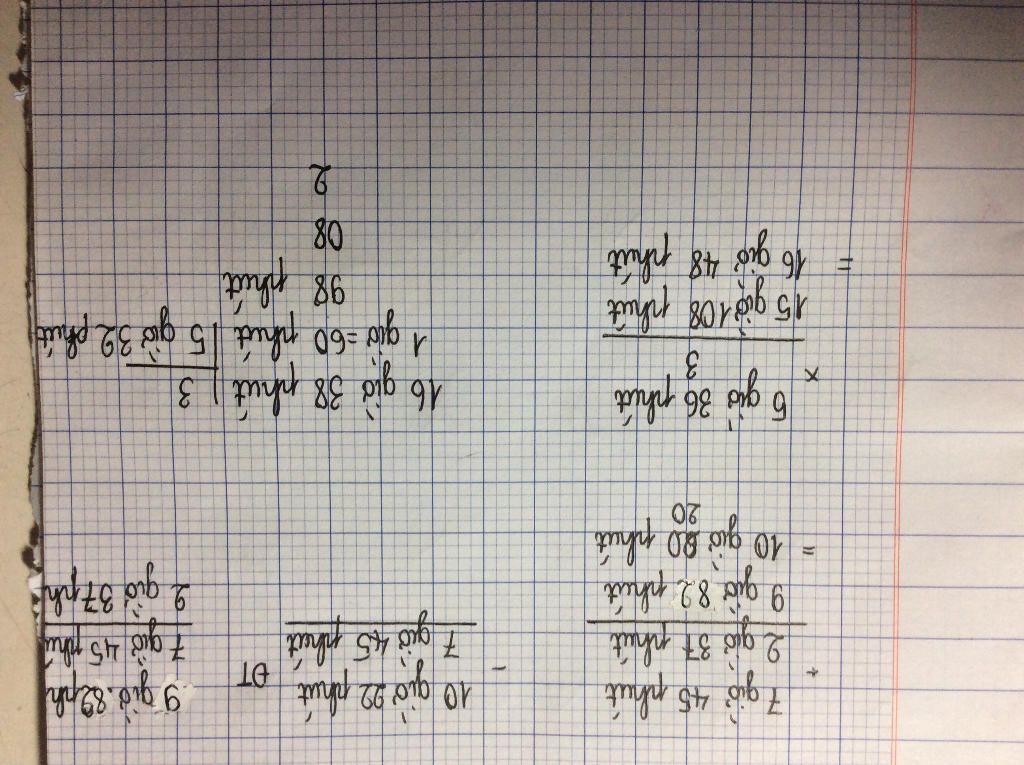 +
7 giờ 45 phút
2 giờ 37 phút
9 giờ 82 phút
= 10 giờ phút
20
-
10 giờ 22 phút
7 giờ 45 phút
ĐT
9 giờ 82 ph
7 giờ 45 phú
2 giờ 37 ph
×
5 giờ 36 phút
3
15 giờ 108 phút
= 16 giờ 48 phút
16 giờ 38 phút 3
1 giờ = 60 phút 5 giờ 32 phút
98 phút
08
2